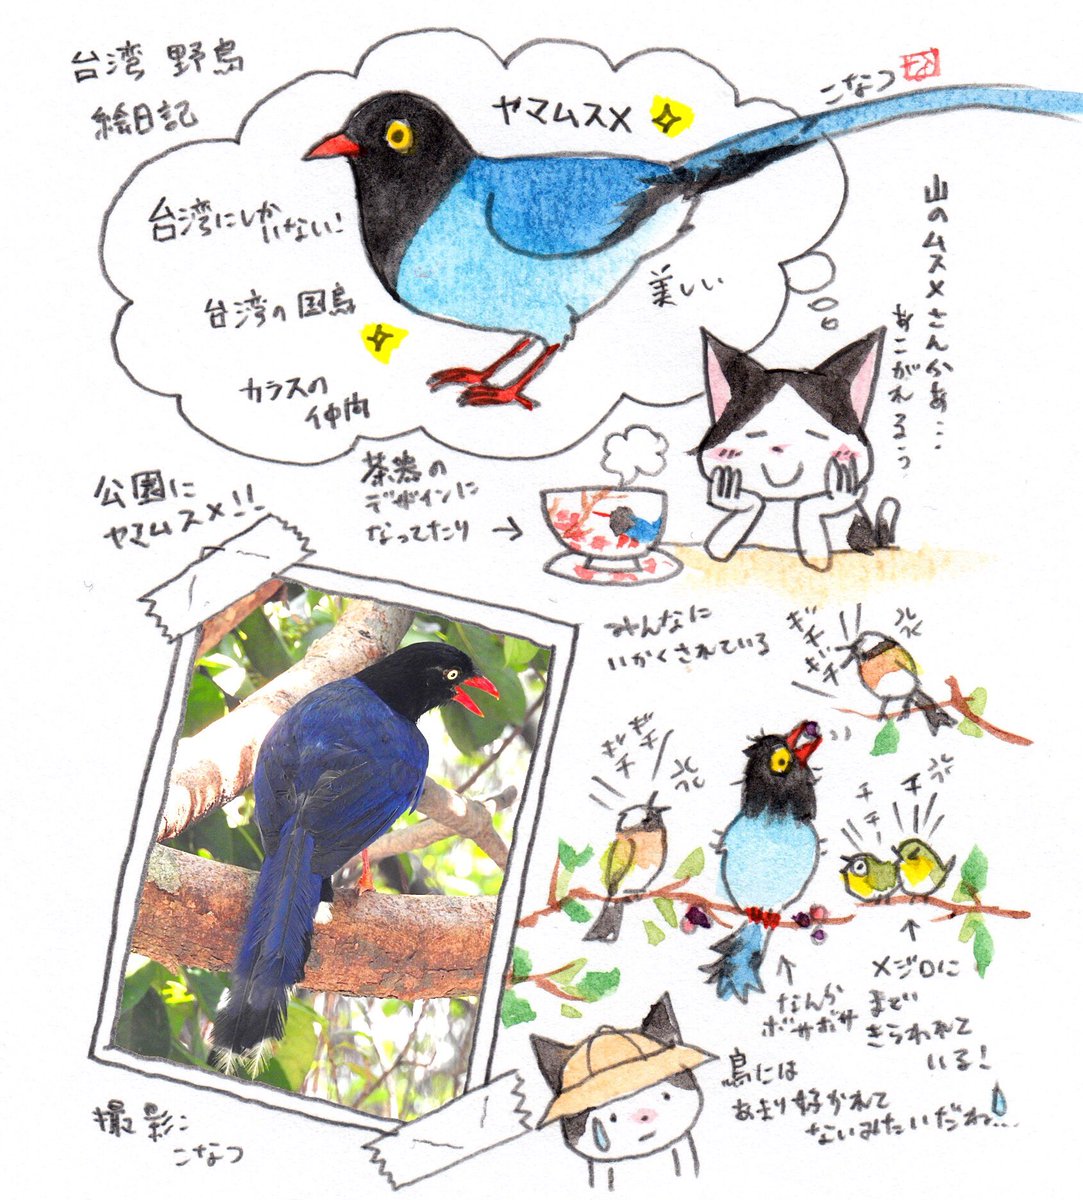 台湾 野鳥
絵日記
こなつ
ヤマムスメ
台湾にしか
いない!
台湾の国鳥
美しい
カラスの
仲間
山のムスメさんかぁ…
あこがれるぅ
茶器の
デザインに
なってたり →
公園に
ヤマムスメ!!
みんなに
いかくされている
ギチギチ
ギチギチ
チチチ
チ
↑
なんか
ボサボサ
↑
メジロに
まで
きらわれて
いる!
鳥には
あまり好かれて
ないみたいだね…
撮影:
こなつ